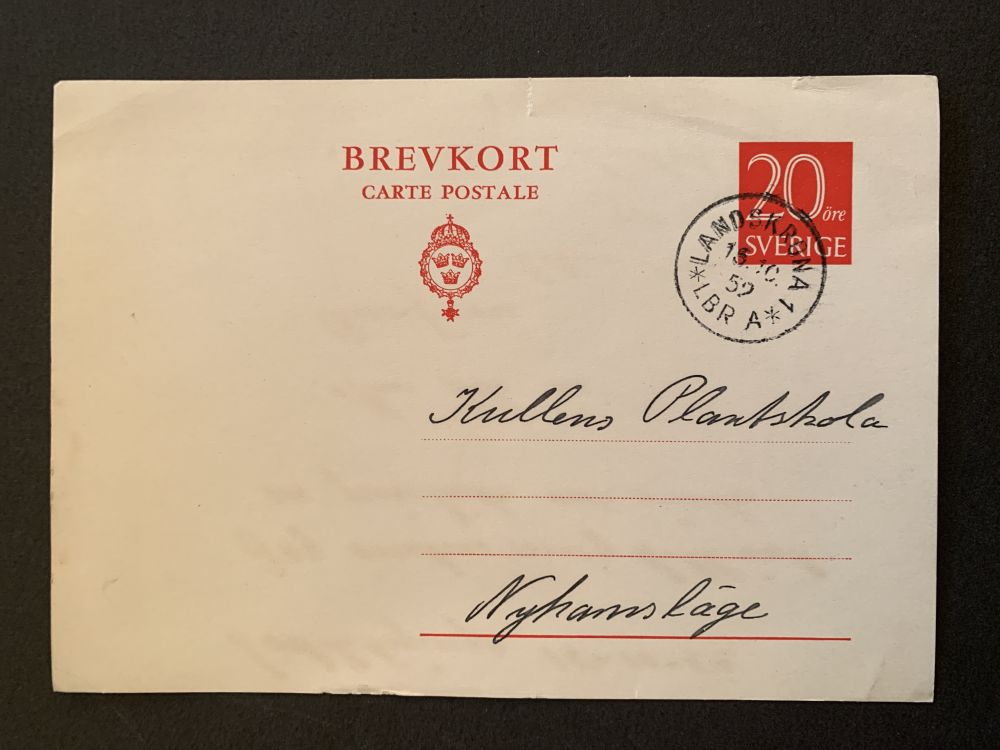 BREVKORT
CARTE POSTALE
20 öre
SVERIGE
LANDSKRONA 1
10.
LBR A
Kullens Plantskola
Nyhamsläge